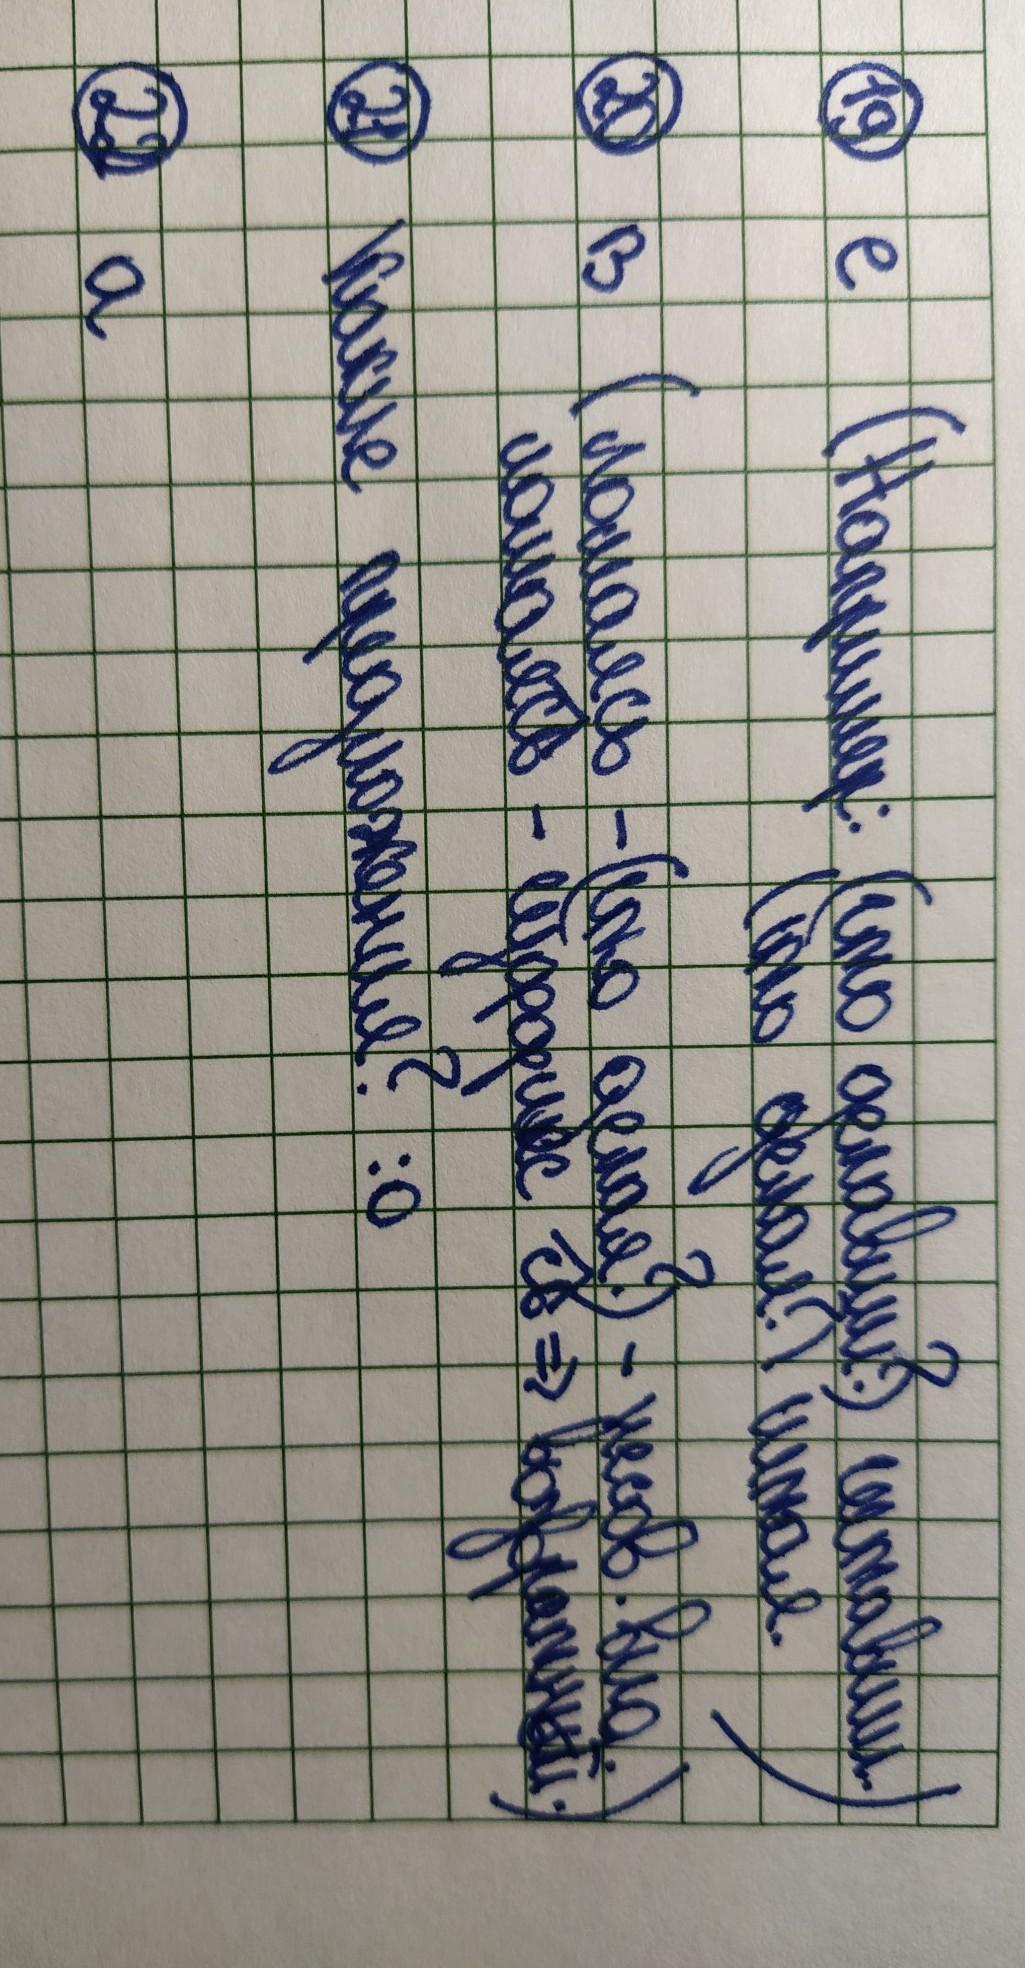 19 е (Например: (что делавший?) читавший.
(что делал?) читал.)
20 в (ломаясь - (что делая?) - несов. вид
ломаясь - содержит сь => возвратный.)
21 Какие предложения? :о
22 а